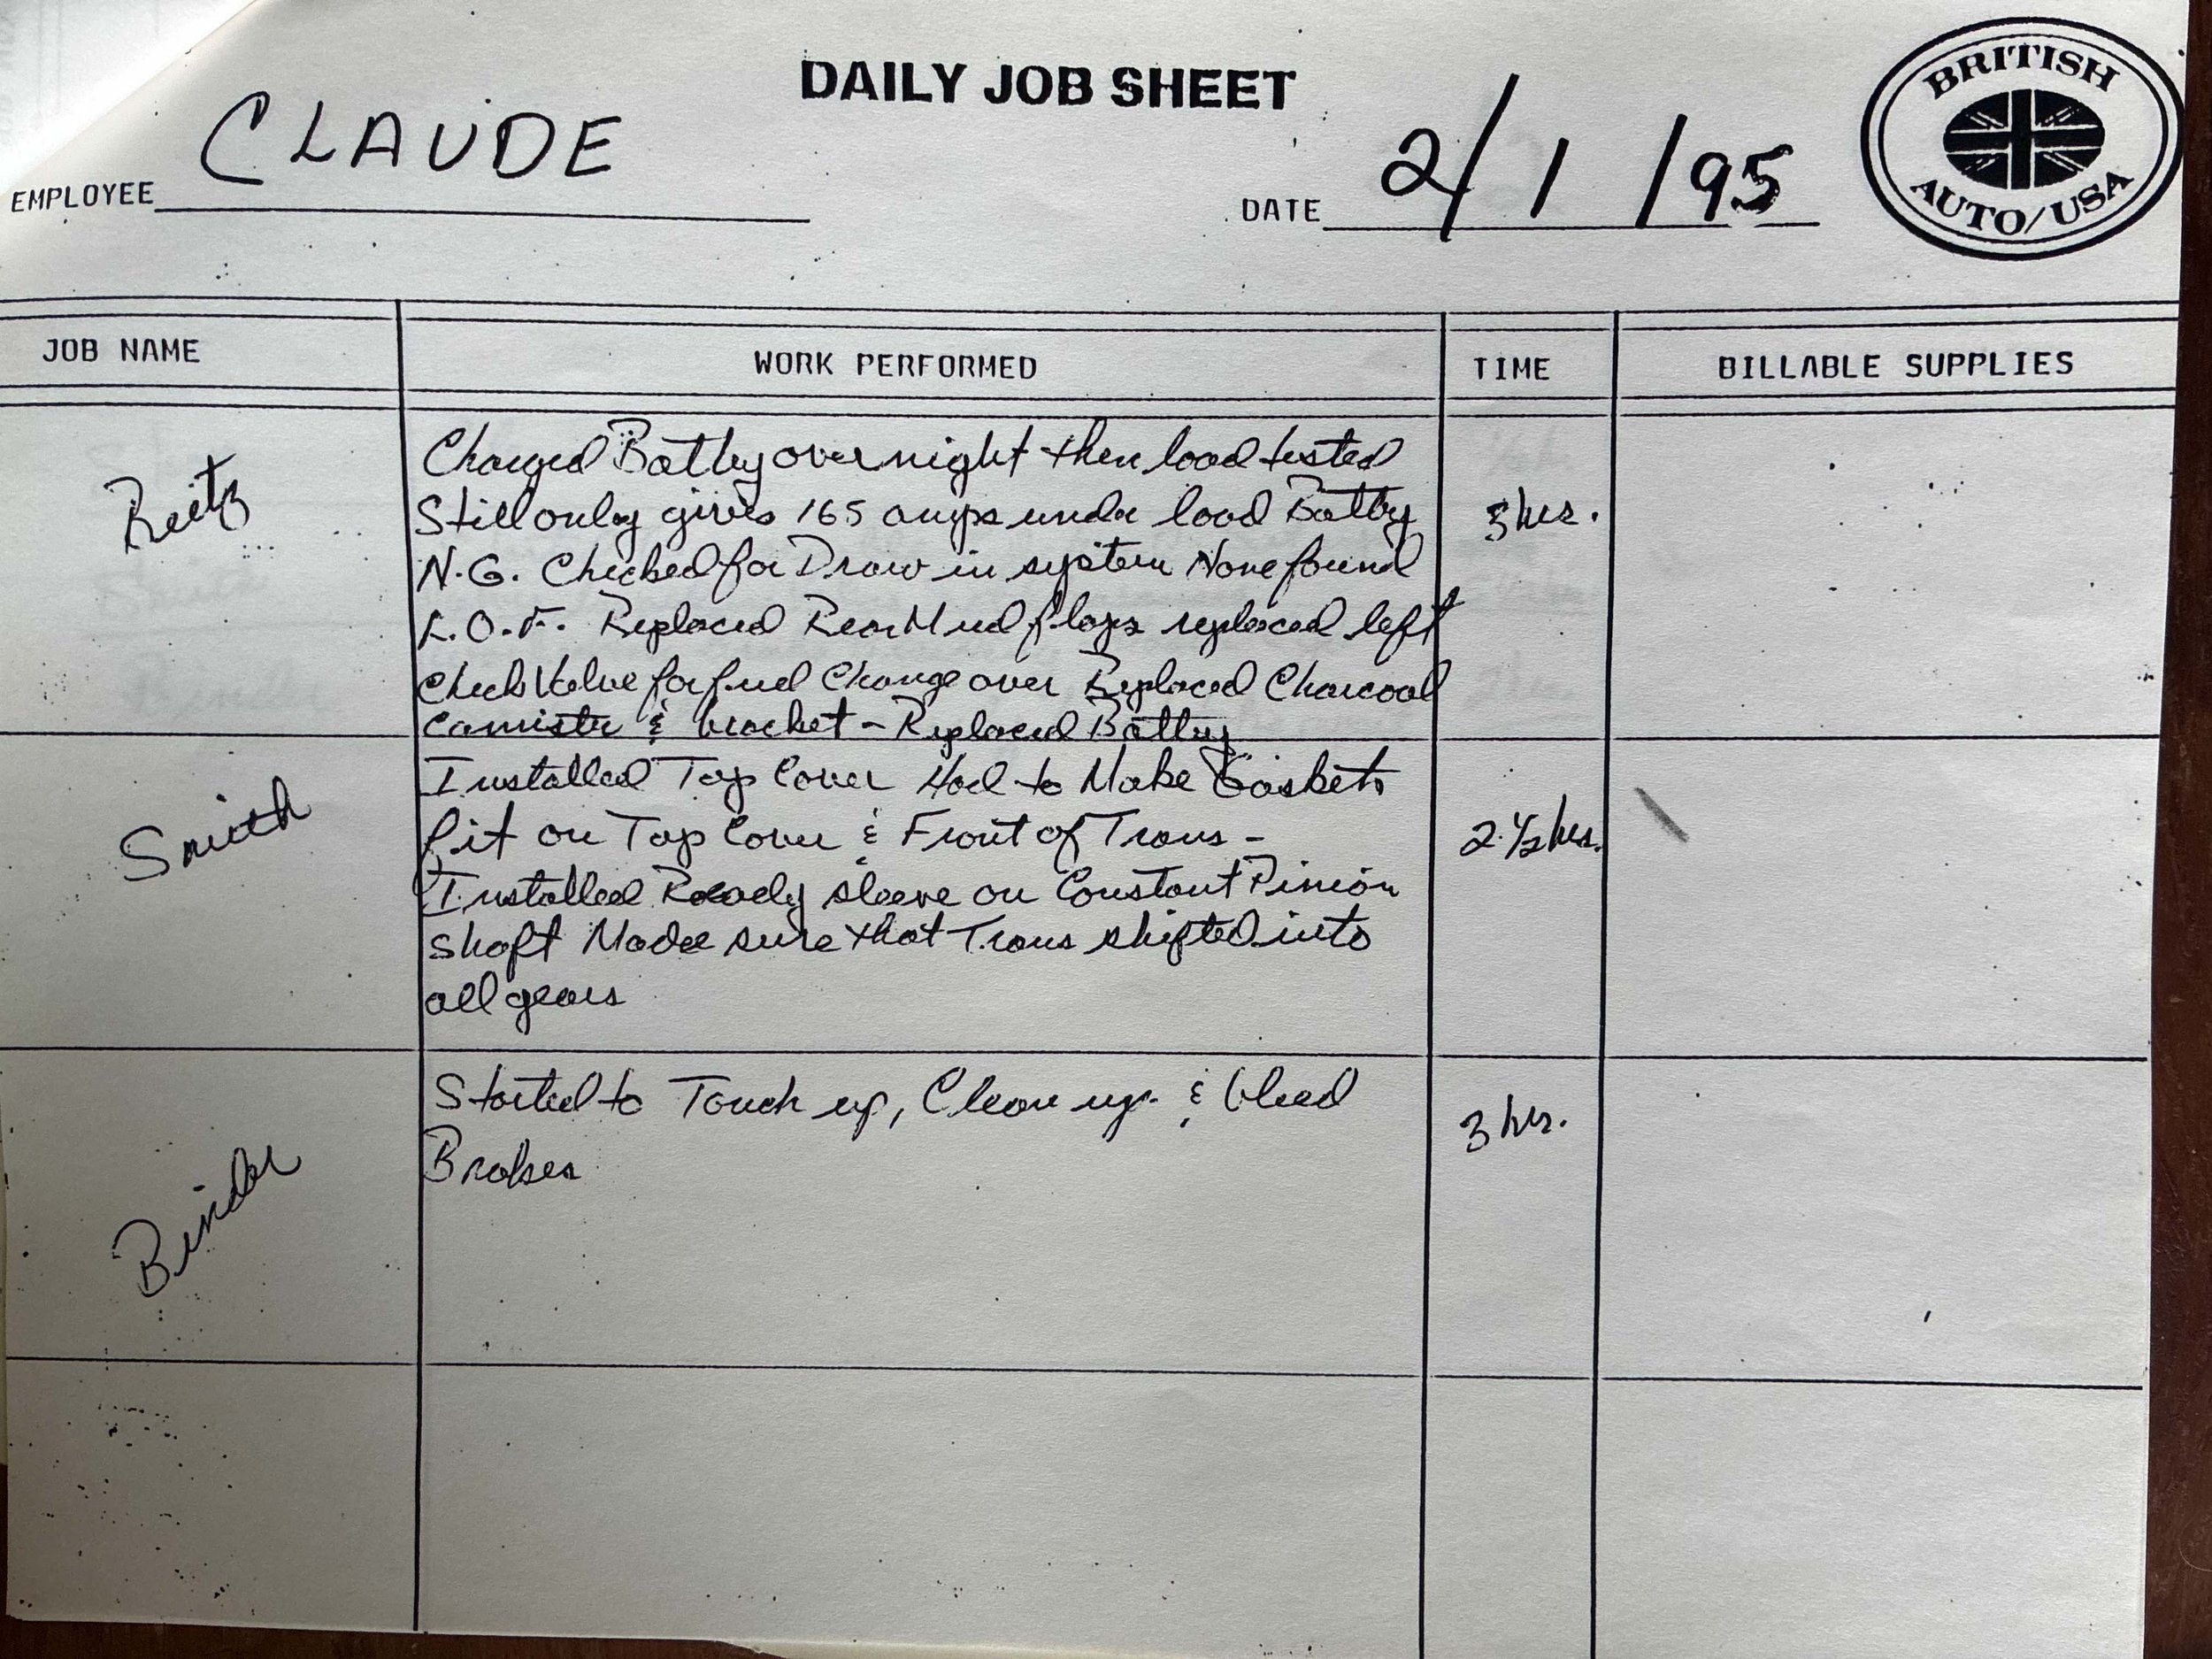 DAILY JOB SHEET
BRITISH
AUTO/USA
EMPLOYEE CLAUDE
DATE 2/1/95
JOB NAME WORK PERFORMED TIME BILLABLE SUPPLIES
Reitz
Charged Battey overnight then load tested
Still only gives 165 amps under load Battey
3 hrs.
N.G. Checked for Draw in system None found
L.O.F. Replaced Rear Mud flaps replaced left
Check Valve for fuel Change over Replaced Charcoal
Canister & bracket - Replaced Battey
Smith
Installed Top Cover Had to Make Gaskets
fit on Top Cover & Front of Trans -
2 1/2 hrs.
Installed Ready sleeve on Constant Pinion
shaft Made sure that Trans shifted into
all gears
Binder
Started to Touch up, Clean up & bleed
Brakes
3 hrs.